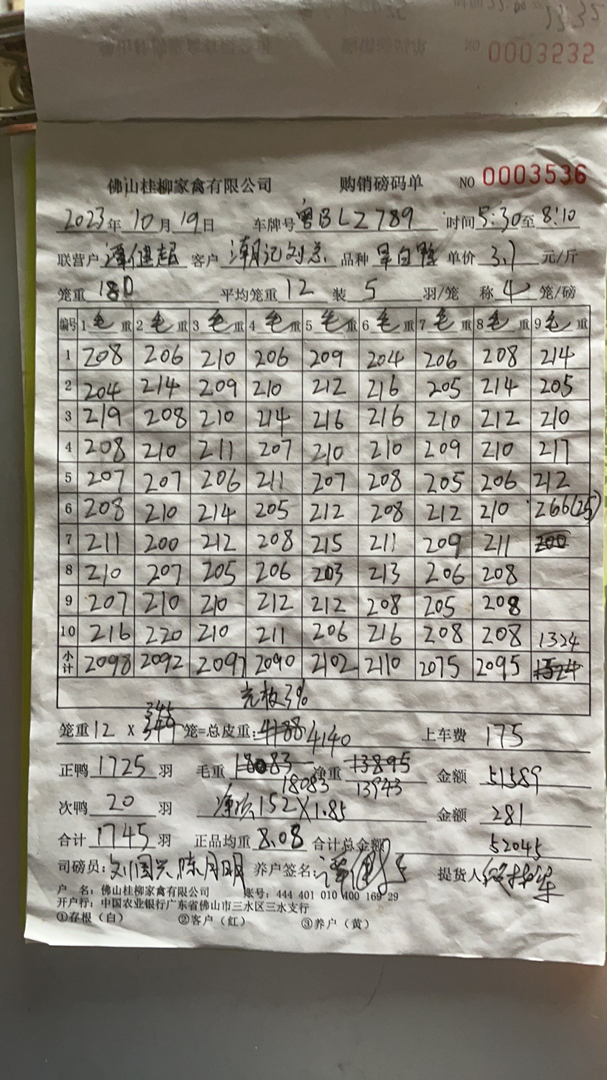 NO 0003232
佛山桂柳家禽有限公司 购销磅码单 NO 0003536
2023年 10月 19日 车牌号 粤BLZ789 时间 5:30 至 8:10
联营户 客户 潮记刘总 品种 单价 3.7 元/斤
笼重 180 平均笼重 12 装 5 羽/笼 称 4 笼/磅
编号 1 毛重 2 毛重 3 毛重 4 毛重 5 毛重 6 毛重 7 毛重 8 毛重 9 毛重
1 208 206 210 206 209 204 206 208 214
2 204 214 209 210 212 216 205 214 205
3 219 208 210 214 216 216 210 212 210
4 208 210 211 207 210 210 209 210 217
5 207 207 206 211 207 208 205 206 212
6 208 210 214 205 212 208 212 210 266(25)
7 211 200 212 208 215 211 209 211 200
8 210 207 205 206 203 213 206 208
9 207 210 210 212 212 208 205 208
10 216 220 210 211 206 216 208 208 1324
小计 2098 2092 2097 2090 2102 2110 2075 2095 1524
3%
345
笼重 12 X 349 笼=总皮重: 4188 4140 上车费 175
正鸭 1725 羽 毛重 18083 净重 13895 金额 51589
18083 13943
次鸭 20 羽 152X1.85 金额 281
合计 1745 羽 正品均重 8.08 合计总金额 52045
司磅员: 刘国兴 陈月明 养户签名: 提货人
户 名: 佛山桂柳家禽有限公司 账号: 444 401 010 400 169 29
开户行: 中国农业银行广东省佛山市三水区三水支行
①存根（白） ②客户（红） ③养户（黄）